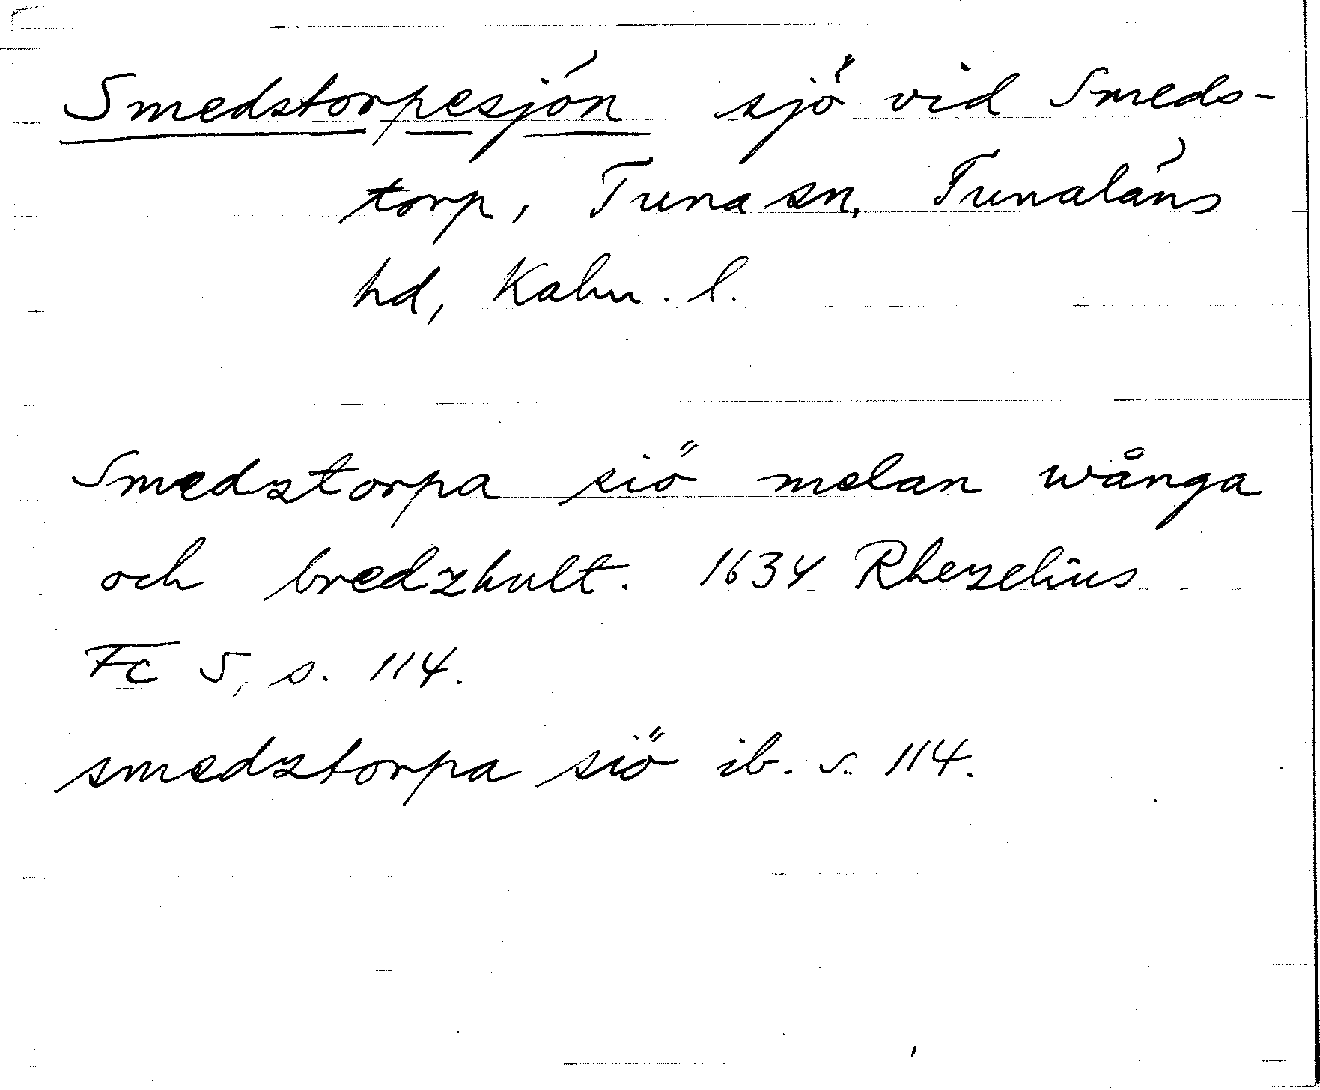 Smedstorpesjön sjö vid Smeds-
torp, Tuna sn, Tunaläns
hd, Kalm. l.
Smedztorpa siö melan wånga
och bredzhult. 1634 Rhezelius
Fc 5, s. 114.
smedztorpa siö ib. s. 114.